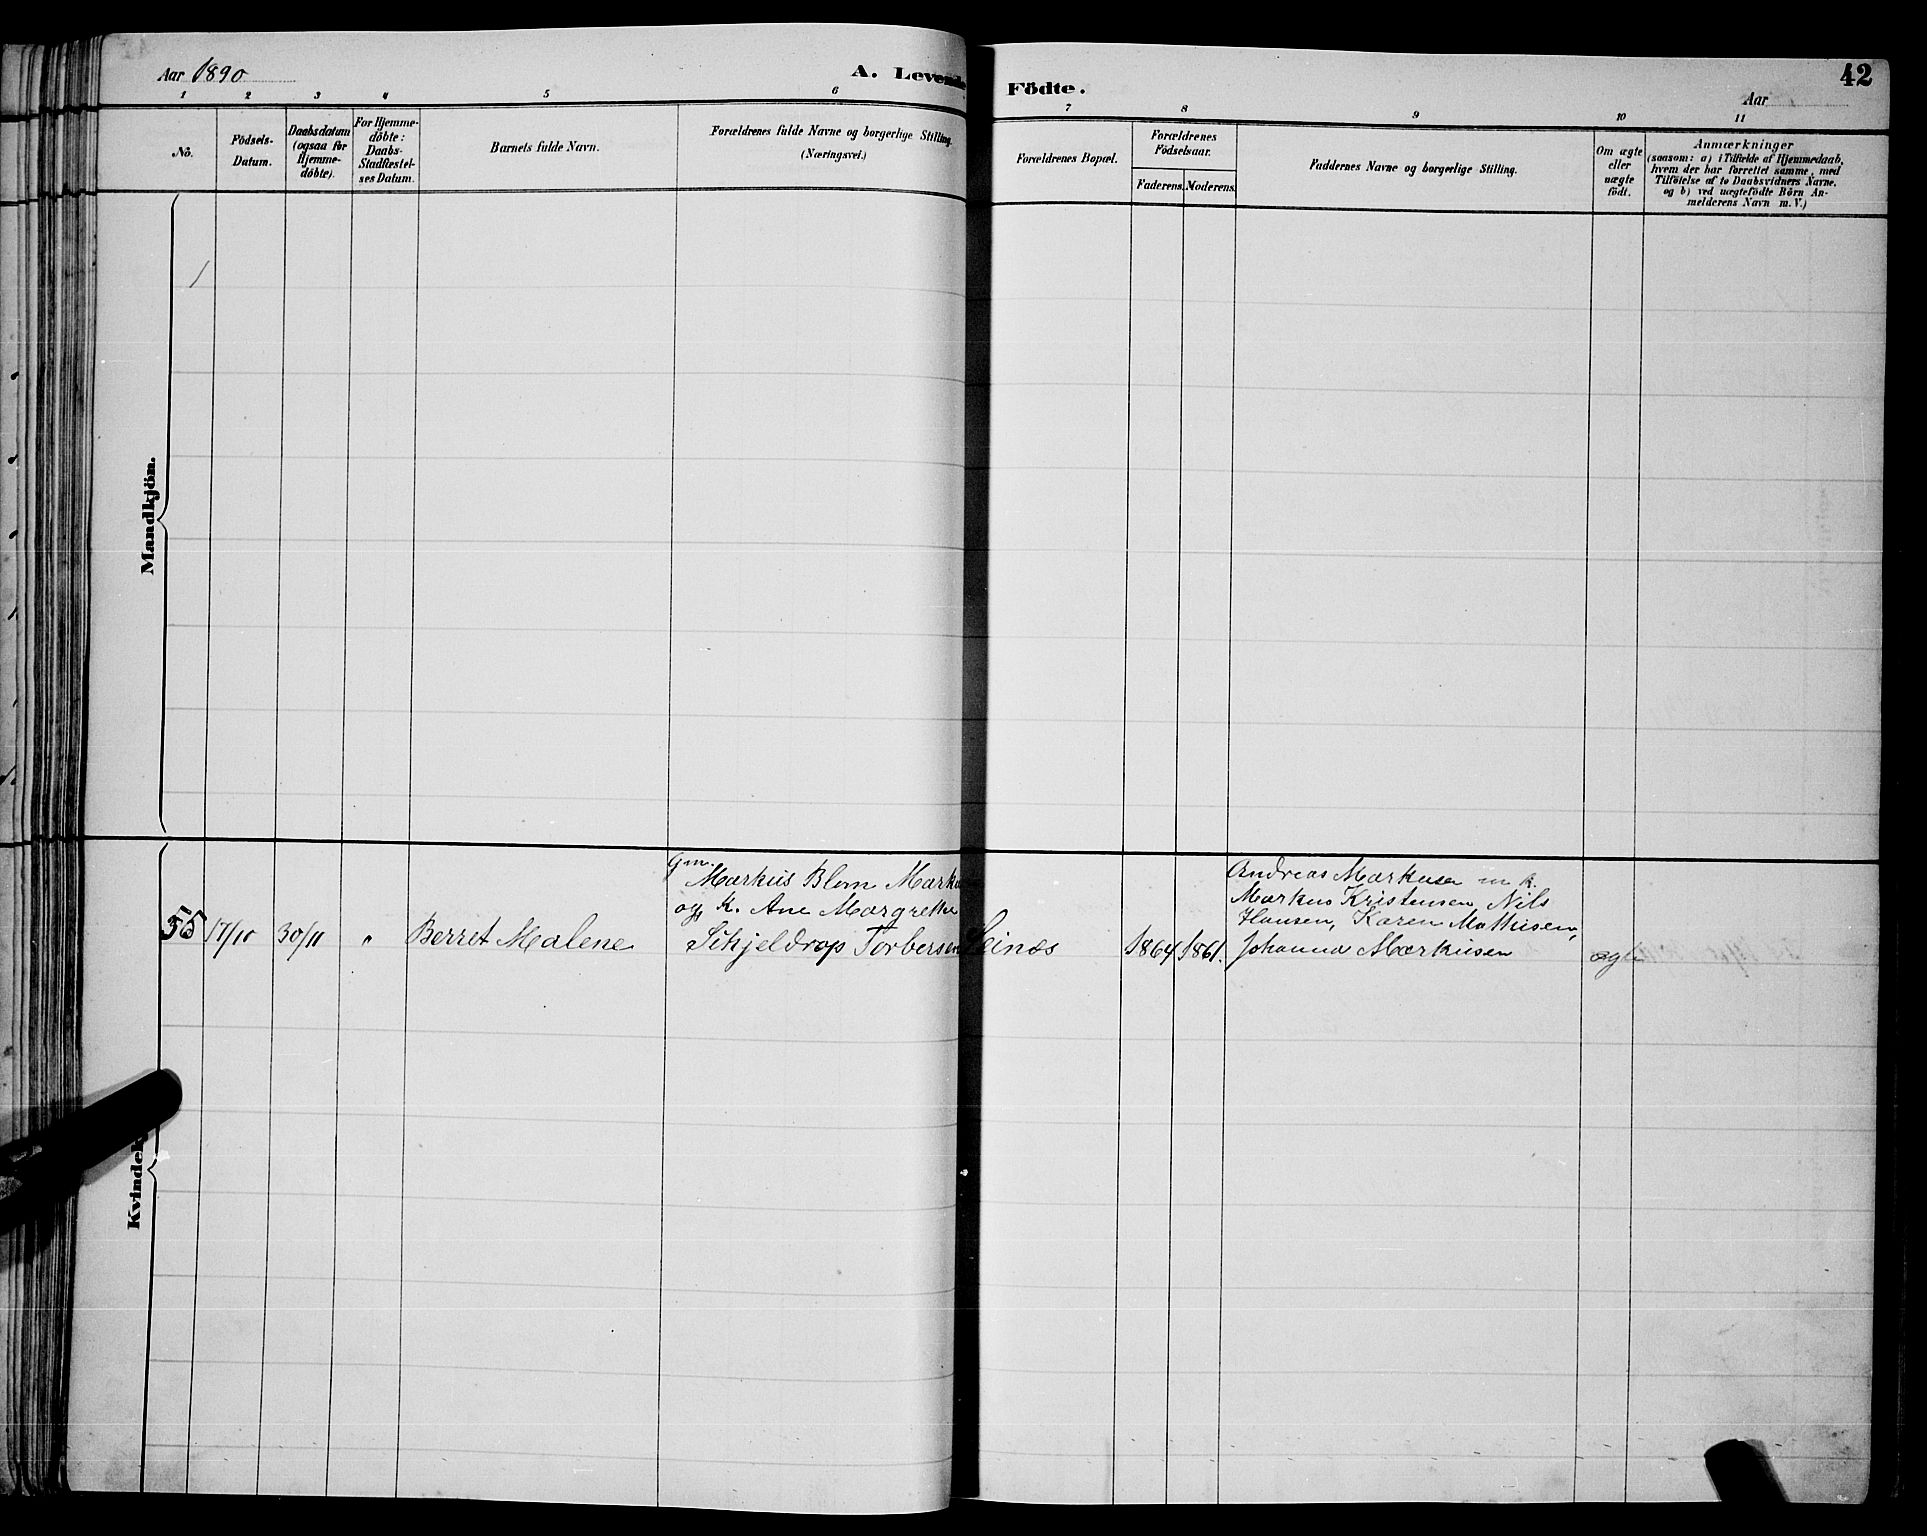 Aar 1890
A. Levende
Födte.
Aar
42
1 2 3 4 5 6 7 8 9 10 11
No.
Födsels-
Datum.
Daabsdatum
(ogsaa for
Hjemme-
döbte).
For Hjemme-
döbte:
Daabs-
Stadfæstel-
ses Datum.
Barnets fulde Navn.
Forældrenes fulde Navne og borgerlige Stilling.
(Næringsvei.)
Forældrenes Bopæl.
Forældrenes
Födselsaar.
Faderens. Moderens.
Faddernes Navne og borgerlige Stilling.
Om ægte
eller
uægte
födt.
Anmærkninger
(saasom: a) i Tilfælde af Hjemmedaab,
hvem der har forrettet samme, med
Tilföielse af to Daabsvidners Navne,
og b) ved uægtefödte Börn An-
melderens Navn m. V.)
Mandkjön.
Kvindek
55
17/10
30/11
"
Berret Malene
Gm.
Markus Blom Marku
og K. Ane Margrethe
Schjeldrop Torbersen
Leinæs
1864
1861.
Andreas Markusen m K.
Markus Kristensen, Nils
Hansen, Karen Mathisen,
Johanna Markusen
ægte